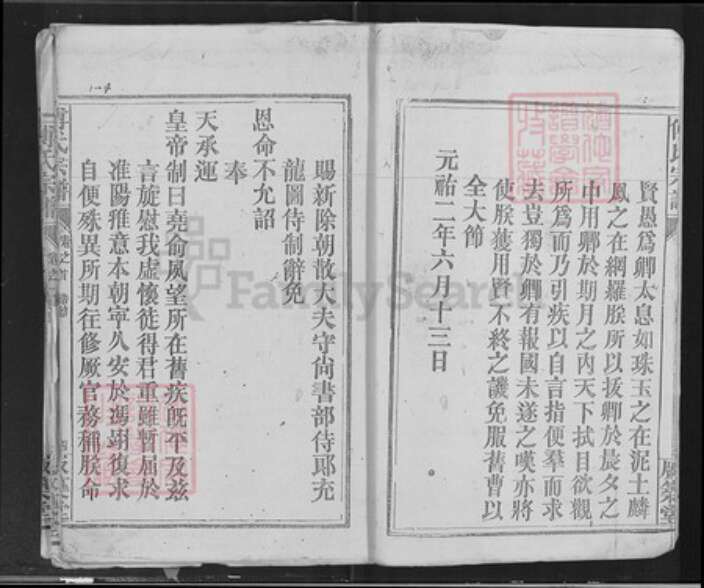 賢愚爲卿太息如珠玉之在泥土麟
鳳之在網羅朕所以拔卿於晨夕之
中用卿於期月之內天下拭目欲觀
所爲而乃引疾以自言指便羣而求
去豈獨於卿有報國未遂之嘆亦將
使朕蒙用賢不終之譏免服舊曹以
全大節
元祐二年六月十三日
賜新除朝散大夫守尙書部侍郎充
龍圖待制辭免
恩命不允詔
奉
天承運
皇帝制曰堯俞風望所在舊疾旣平及玆
言旋慰我虛懷徒得君重雖暫屈於
准陽雅意本朝寧久安於馮翊復求
自便殊異所期往修厥官務稱朕命
傅氏宗譜
卷之首
FamilySearch